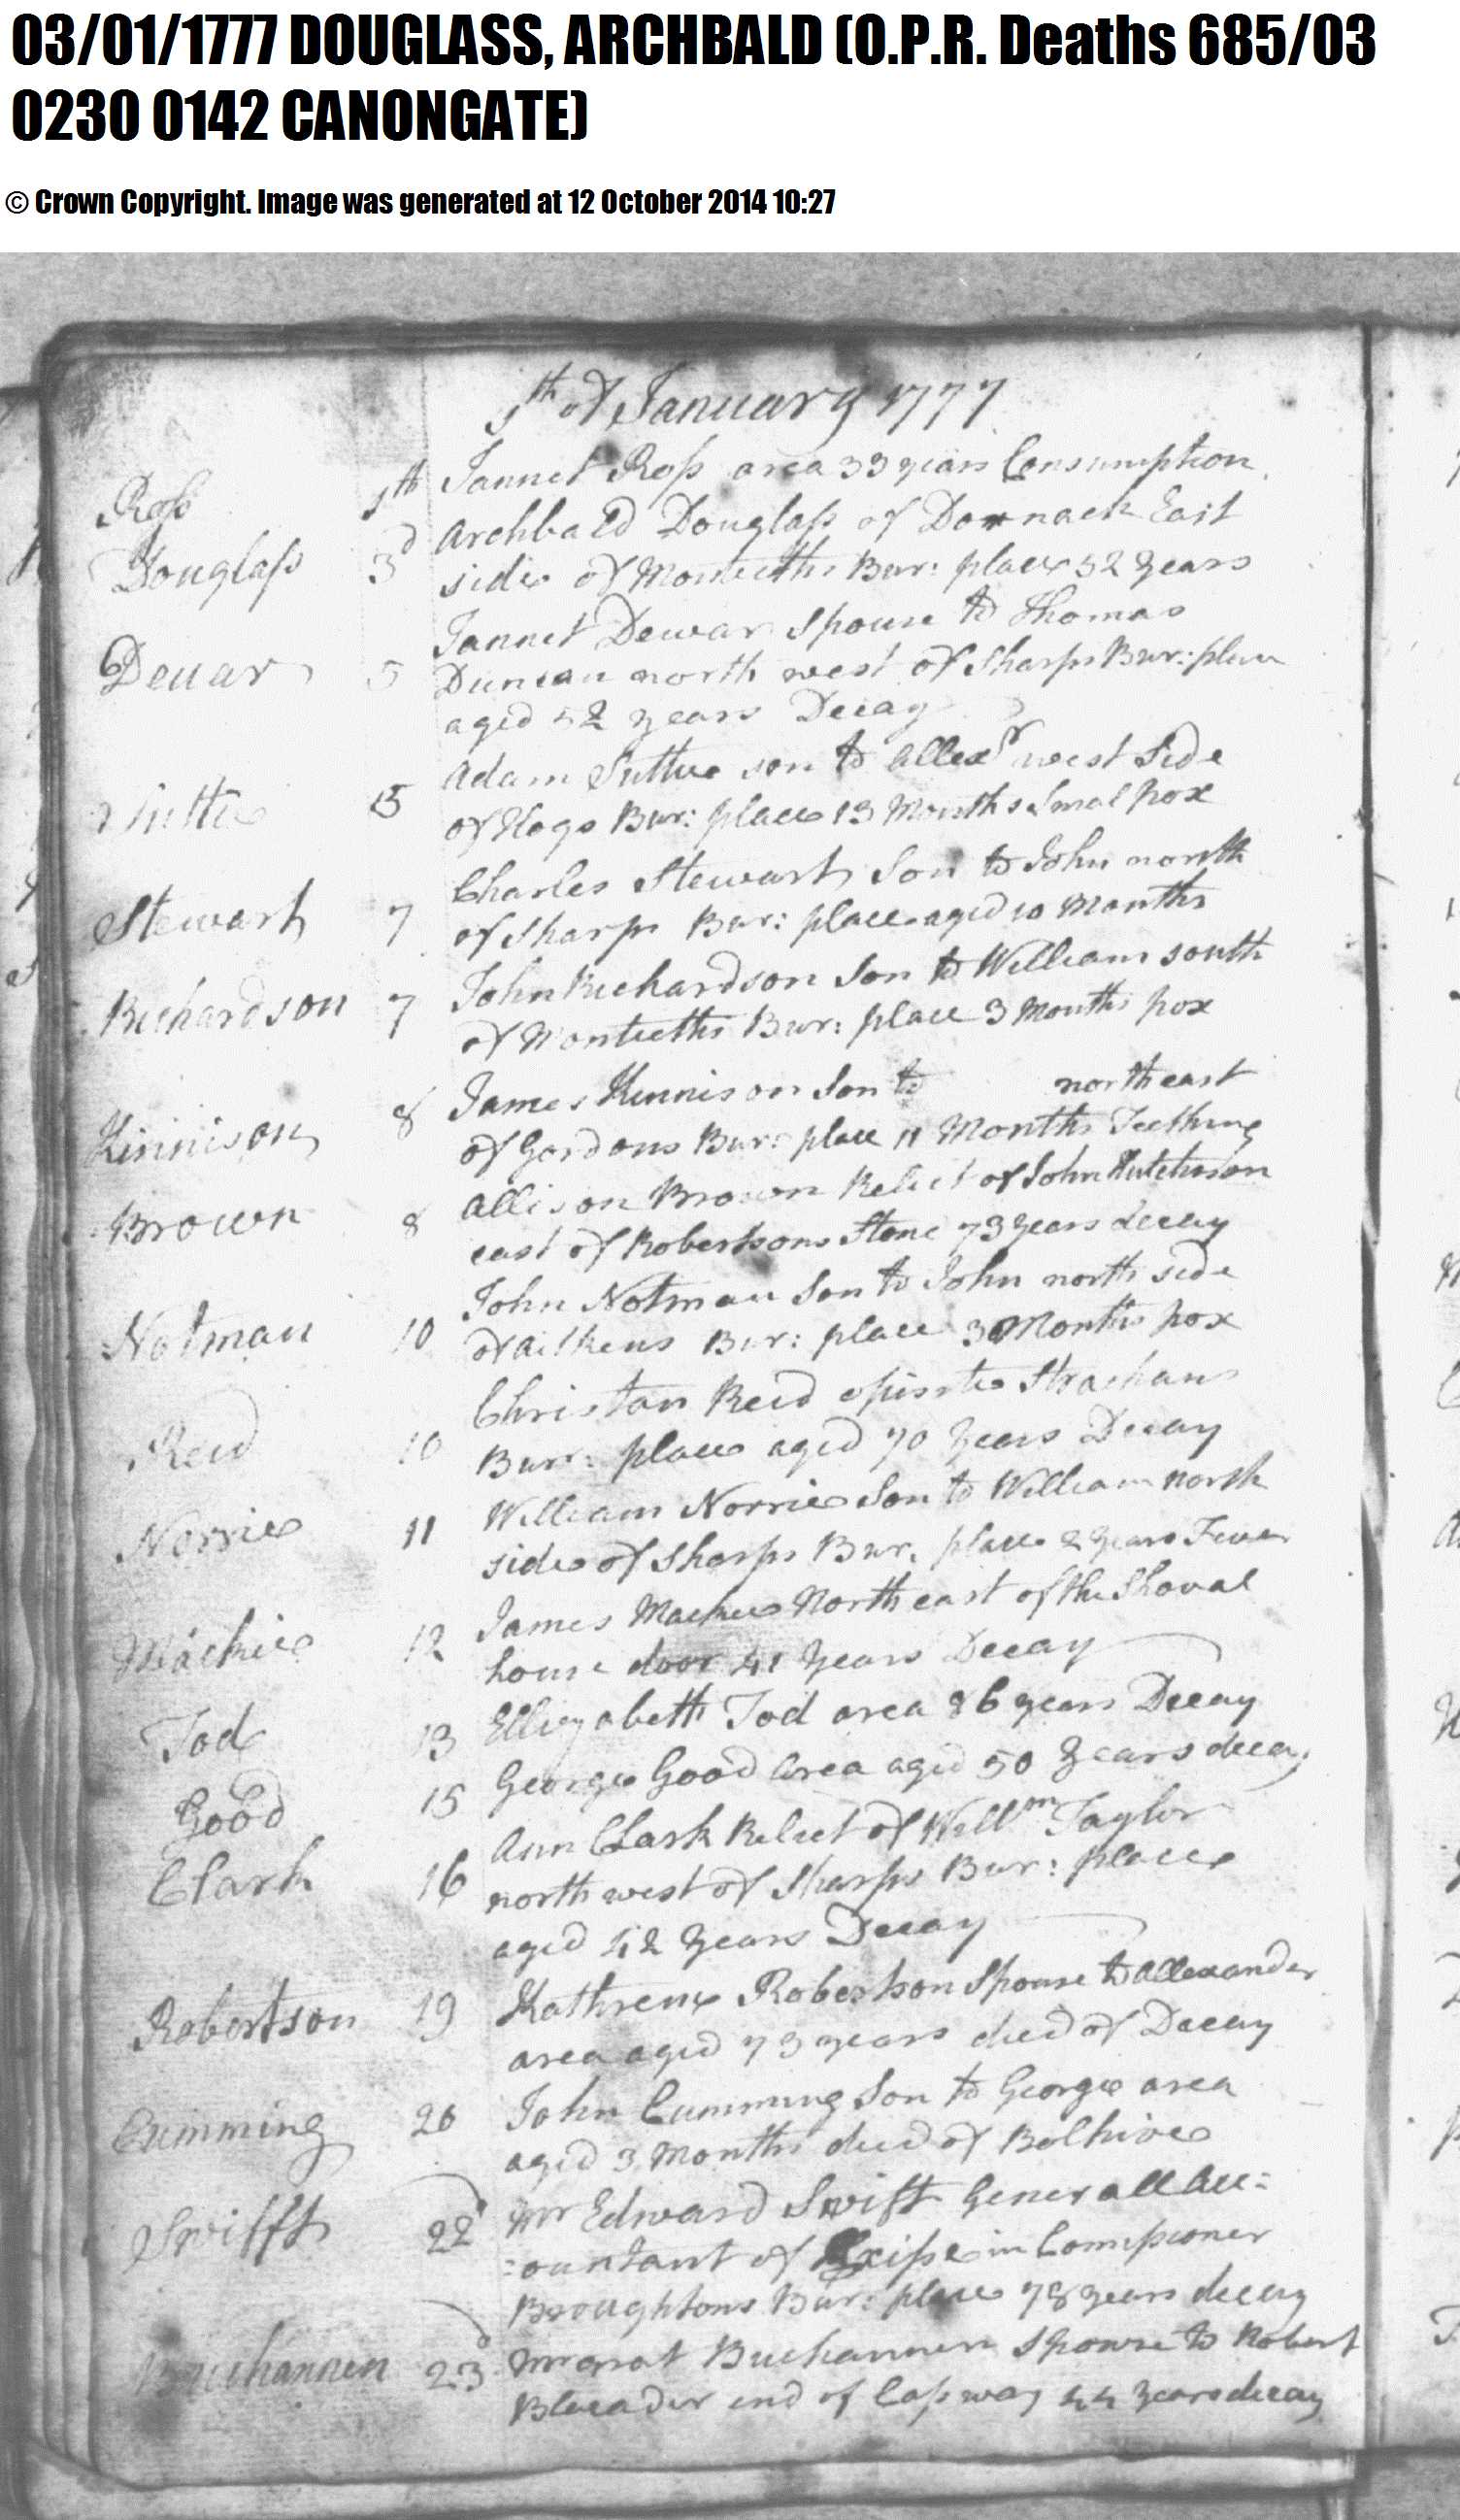 03/01/1777 DOUGLASS, ARCHBALD (O.P.R. Deaths 685/03
0230 0142 CANONGATE)
© Crown Copyright. Image was generated at 12 October 2014 10:27
1th of January 1777
Ross 1th Jannet Ross area 33 years Consumption
Douglass 3d Archbald Douglass of Dornack East
side of Monteeths Bur: place 52 years
Jannet Dewar spouse to Thomas
Deuar 5 Duncan north west of Sharps Bur: place
aged 52 years Decay
Adam Suttie son to Allexr west Side
Suttie 5 of Hogs Bur: place 13 Months Smal pox
Charles Stewart Son to John north
Stewart 7 of Sharps Bur: place aged 10 Months
Richardson 7 John Richardson Son to William south
of Monteeths Bur: place 3 Months pox
Kinnison 8 James Kinnison Son to northeast
of Gordons Bur: place 11 Months Teething
Brown 8 Allison Brown Relict of John Hutchison
east of Robertsons Stone 73 years decay
John Notman Son to John north side
Notman 10 of Aitkens Bur: place 30 Months pox
Christan Reid opisite Strachans
Reid 10 Burr: place aged 70 years Decay
Norrie 11 William Norrie Son to William North
side of Sharps Bur. place 2 years Fever
Mackie 12 James Mackie North east of the Shoval
house door 41 years Decay
Tod 13 Ellizabeth Tod area 86 years Decay
Good 15 George Good Area aged 50 years decay
Ann Clark Relict of Willm Taylor
Clark 16 north west of Sharps Bur: place
aged 42 years Decay
Robertson 19 Kathrene Robertson Spouse to Allexander
area aged 73 years died of Decay
Cumming 20 John Cumming Son to George area
aged 3 Months died of Bolhive
Swifft 22d Mr Edward Swift Generall Acc=
=ountant of Exise in Comissioner
Broughtons Bur: place 78 years decay
Buchannen 23d Mrgrat Buchannen Spouse to Robert
Blacader end of Casway 44 years decay